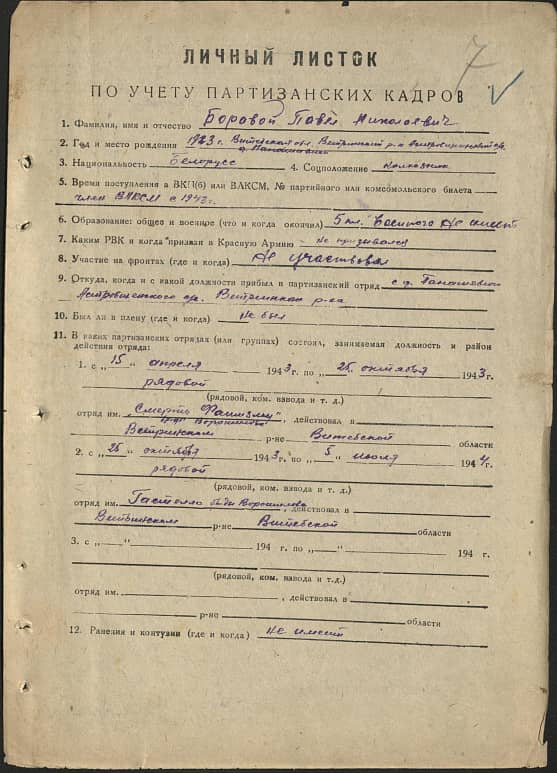 7
ЛИЧНЫЙ ЛИСТОК
ПО УЧЕТУ ПАРТИЗАНСКИХ КАДРОВ
1. Фамилия, имя и отчество Боровой Павел Николаевич
2. Год и место рождения 1923 г. Витебская обл. Ветринский р-н
3. Национальность Белорусс 4. Соцположение колхозник
5. Время поступления в ВКП(б) или ВЛКСМ, № партийного или комсомольского билета
член ВЛКСМ с 1943 г.
6. Образование: общее и военное (что и когда окончил) 5 кл. Военного не имеет
7. Каким РВК и когда призван в Красную Армию не призывался
8. Участие на фронтах (где и когда) Не участвовал
9. Откуда, когда и с какой должности прибыл в партизанский отряд с д.
Ветринского р-на
10. Был ли в плену (где и когда) не был
11. В каких партизанских отрядах (или группах) состоял, занимаемая должность и район
действия отряда:
1. с „15" апреля 1943 г. по „25" октября 1943 г.
рядовой
(рядовой, ком. взвода и т. д.)
отряд им. „Смерть Фашизму", действовал в
бр. Ворошилова
Ветринском р-не Витебской области
2. с „25" октября 1943 г. по „5" июля 1944 г.
рядовой
(рядовой, ком. взвода и т. д.)
отряд им. Гастелло бр-ды Ворошилова действовал в
Ветринском р-не Витебской области
3. с „ " 194 г. по „ " 194 г.
(рядовой, ком. взвода и т.д.)
отряд им. , действовал в
р-не области
12. Ранения и контузии (где и когда) не имеет